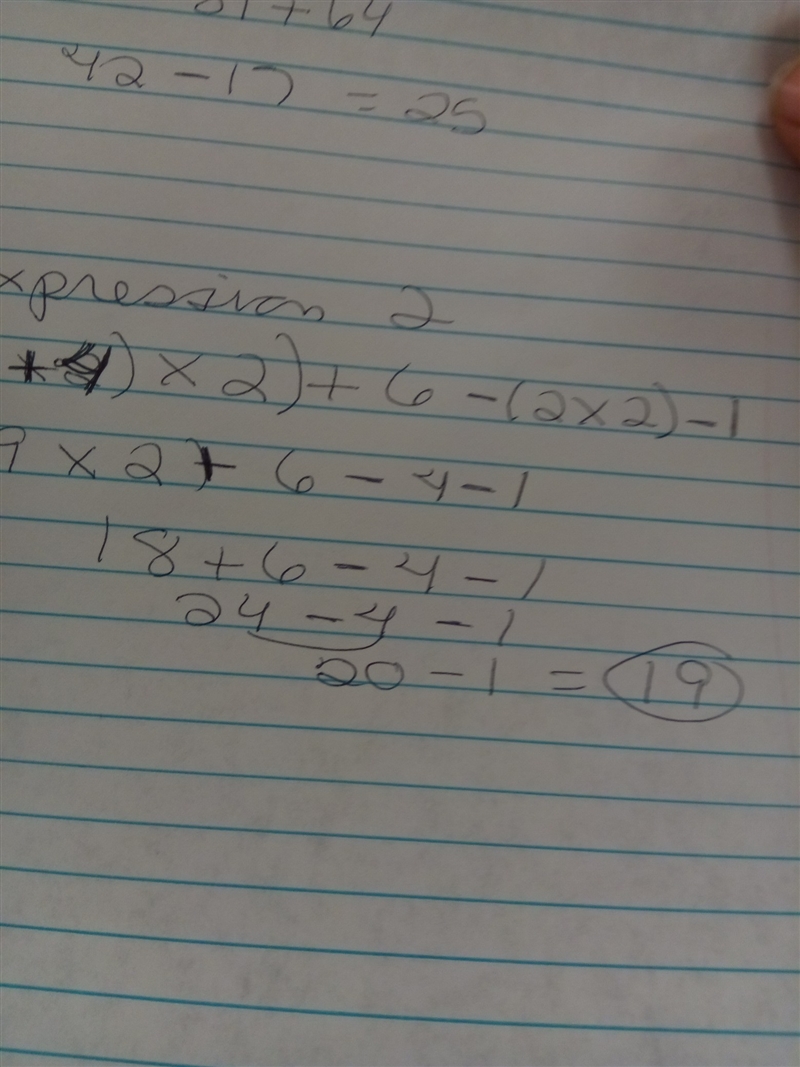 + 64
42 - 17 = 25
xpression 2
+ 4) × 2) + 6 - (2×2) - 1
9 × 2) + 6 - 4 - 1
18 + 6 - 4 - 1
24 - 4 - 1
20 - 1 = 19